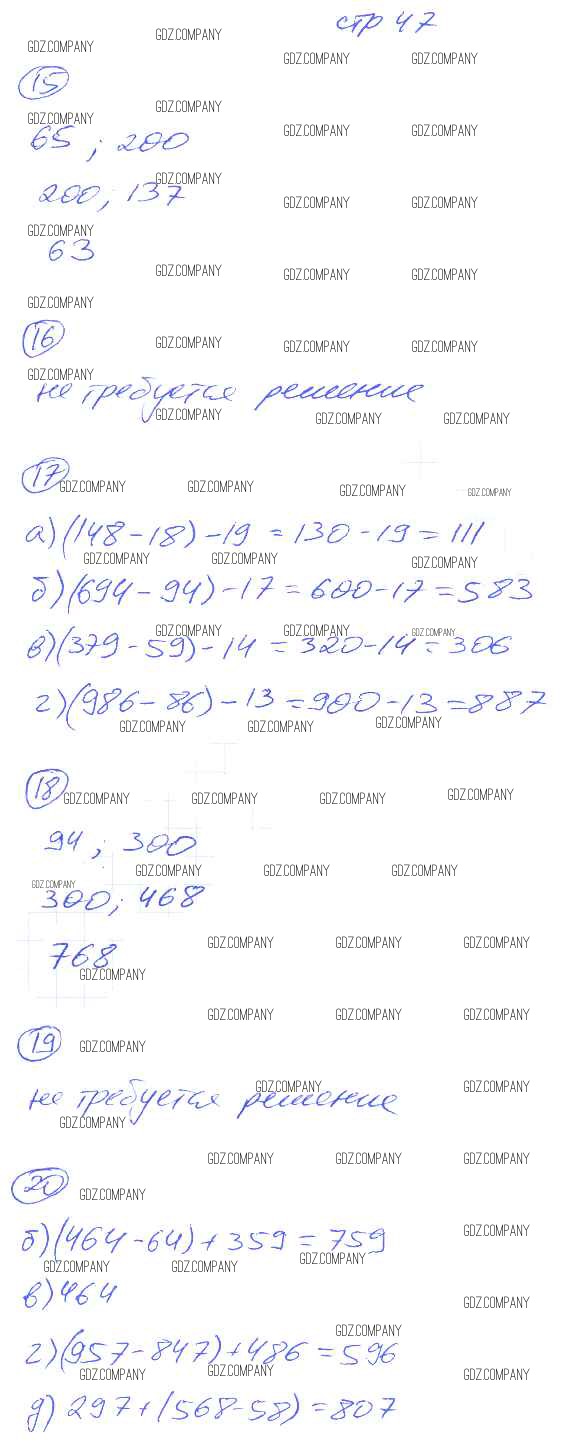 стр 47
15
65 ; 200
200; 137
63
16
не требуется решение
17
а)(148-18)-19 = 130-19 = 111
б)(694-94)-17 = 600-17 = 583
в)(379-59)-14 = 320-14 = 306
г)(986-86)-13 = 900-13 = 887
18
94 ; 300
300; 468
768
19
не требуется решение
20
б)(464-64)+359 = 759
в)464
г)(957-847)+486 = 596
д) 297+(568-58) = 807
GDZ.COMPANY